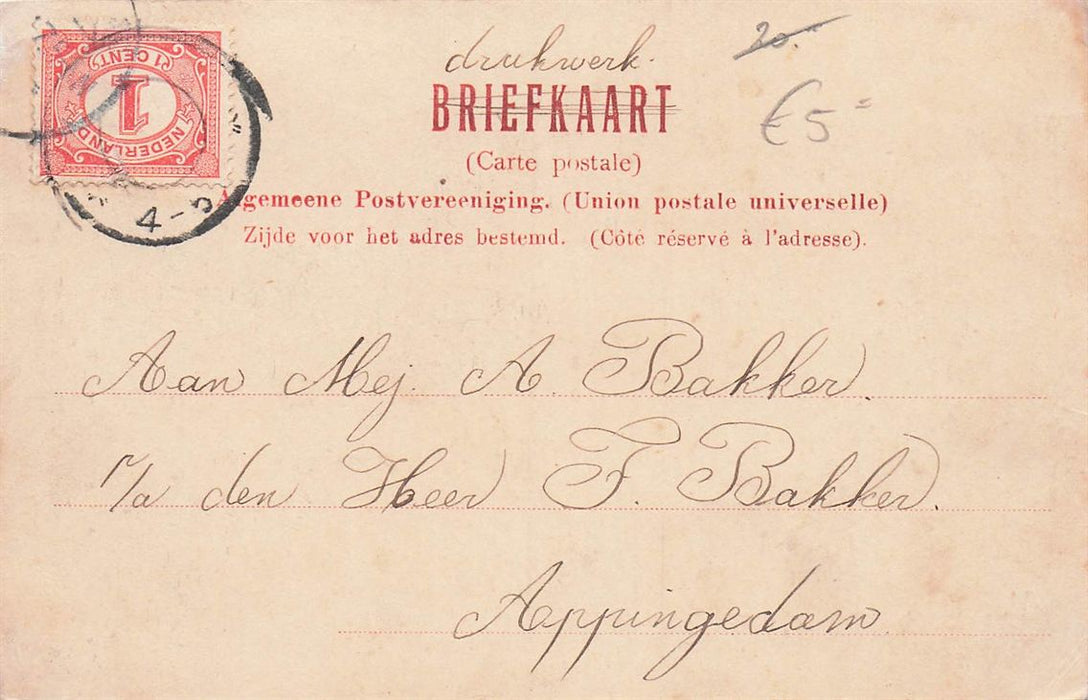 drukwerk.
20.-
BRIEFKAART
€5=
(Carte postale)
Algemeene Postvereeniging. (Union postale universelle)
Zijde voor het adres bestemd. (Côté réservé à l'adresse).
1 CENT
1
NEDERLAND
4-5
Aan Mej. A Bakker.
p/a den Heer F. Bakker.
Appingedam